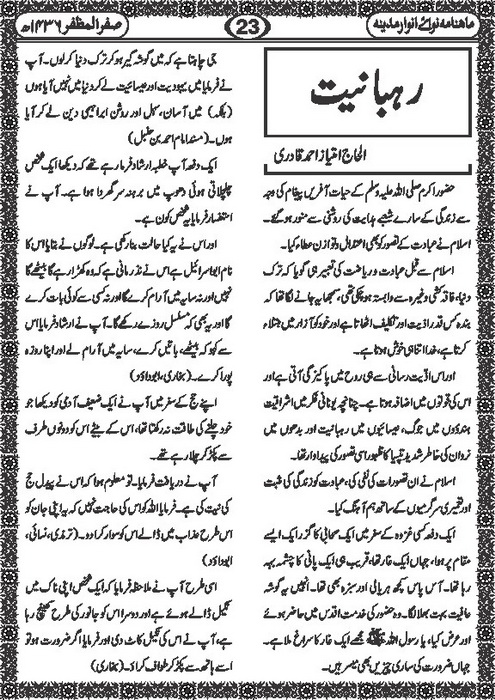 ماہنامہ نوائے انوار مدینہ
23
صفر المظفر ۱۴۳۶ھ
رہبانیت
الحاج امتیاز احمد قادری
حضور اکرم صلی اللہ علیہ وسلم کے حیات آفریں پیغام کی وجہ
سے زندگی کے سارے شعبے ہدایت کی روشنی سے منور ہو گئے۔
اسلام نے عبادت کے تصور کو بھی اعتدال و توازن عطاء کیا۔
اسلام سے قبل عبادت و ریاضت کی تعبیر ہی گویا کہ ترک
دنیا، فاقہ کشی وغیرہ سے وابستہ ہو چکی تھی، سمجھا یہ جانے لگا تھا کہ
بندہ کس قدر اذیت اور تکلیف اٹھاتا ہے اور خود کو آزار میں مبتلاء
کرتا ہے، خدا اتنا ہی خوش ہوتا ہے۔
اور اس اذیت رسانی سے ہی روح میں پاکیزگی آتی ہے اور
اس کی قوتوں میں اضافہ ہوتا ہے۔ چنانچہ یونانی فکر میں اشراقیت
ہندؤوں میں جوگ، عیسائیوں میں رہبانیت اور بدھوں میں
نروان کی خاطر شدید تپسیا کا ظہور اسی تصور کی پیداوار تھا۔
اسلام نے ان تصورات کی نفی کی، عبادت کو زندگی کی مثبت
اور تعمیری سرگرمیوں کے ساتھ ہم آہنگ کیا۔
ایک دفعہ کسی غزوہ کے سفر میں ایک صحابی کا گزر ایک ایسے
مقام پر ہوا، جہاں ایک غار تھا، قریب ہی ایک پانی کا چشمہ بہہ
رہا تھا۔ آس پاس کچھ ہریالی اور سبزہ بھی تھا۔ انہیں یہ گوشہ
عافیت بہت بھلا لگا۔ وہ حضور کی خدمت اقدس میں حاضر ہوئے
اور عرض کیا، یا رسول اللہ ﷺ مجھے ایک غار کا سراغ ملا ہے۔
جہاں ضرورت کی ساری چیزیں بھی میسر ہیں۔
جی چاہتا ہے کہ میں گوشہ گیر ہو کر ترک دنیا کر لوں۔ آپ
نے فرمایا میں یہودیت اور عیسائیت لے کر دنیا میں نہیں آیا ہوں
(بلکہ) میں آسان، سہل اور روشن ابراہیمی دین لے کر آیا
ہوں۔ (مسند امام احمد بن حنبل)
ایک دفعہ آپ خطبہ ارشاد فرما رہے تھے کہ دیکھا ایک شخص
چلچلاتی ہوئی دھوپ میں برہنہ سر کھڑا ہوا ہے۔ آپ نے
استفسار فرمایا یہ شخص کون ہے۔
اور اس نے یہ کیا حالت بنا رکھی ہے۔ لوگوں نے بتایا اس کا
نام ابو اسرائیل ہے اس نے نذر مانی ہے کہ وہ کھڑا رہے گا بیٹھے گا
نہیں اور نہ سایہ میں آرام کرے گا اور نہ کسی سے کوئی بات کرے
گا اور یہ بھی کہ مسلسل روزے رکھے گا۔ آپ نے ارشاد فرمایا اس
سے کہو کہ بیٹھے، باتیں کرے، سایہ میں آرام لے اور اپنا روزہ
پورا کرے۔ (بخاری، ابو داؤد)
اپنے حج کے سفر میں آپ نے ایک ضعیف آدمی کو دیکھا جو
خود چلنے کی طاقت نہ رکھتا تھا، اس کے بیٹے اس کو دونوں طرف
سے پکڑ کر چلا رہے تھے۔
آپ نے دریافت فرمایا۔ تو معلوم ہوا کہ اس نے پیدل حج
کی نیت کی ہے۔ فرمایا اللہ کو اس کی حاجت نہیں کہ یہ اپنی جان کو
اس طرح عذاب میں ڈالے اس کو سوار کرا دو۔ (ترمذی، نسائی،
ابو داؤد)
اسی طرح آپ نے ملاحظہ فرمایا کہ ایک شخص اپنی ناک میں
نکیل ڈالے ہوئے ہے اور دوسرا اس کو جانور کی طرح کھینچ رہا
ہے، آپ نے اس کی نکیل کاٹ دی اور فرمایا اگر ضرورت ہو تو
اسے ہاتھ سے پکڑ کر طواف کراؤ۔ (بخاری)